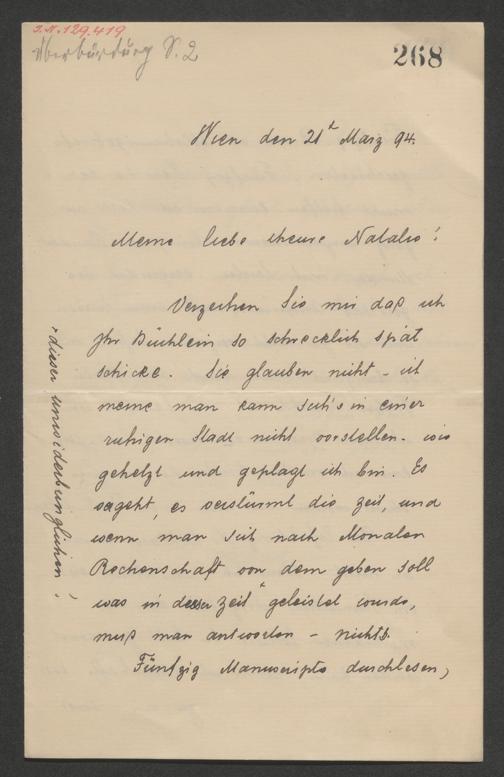 I.N. 129.419
Überbürdung S. 2
268
Wien den 21t März 94.
Meine liebe theure Natalie!
Verzeihen Sie mir daß ich
Ihr Büchlein so schrecklich spät
schicke. Sie glauben nicht – ich
meine man kann sich's in einer
ruhigen Stadt nicht vorstellen. wie
gehetzt und geplagt ich bin. Es
vergeht, es verstürmt die Zeit, und
wenn man sich nach Monaten
Rechenschaft von dem geben soll
was in dieser Zeit * geleistet wurde,
muß man antworten – nichts.
Fünfzig Manuscripte durchlesen,
* dieser unwiderbringlichen!